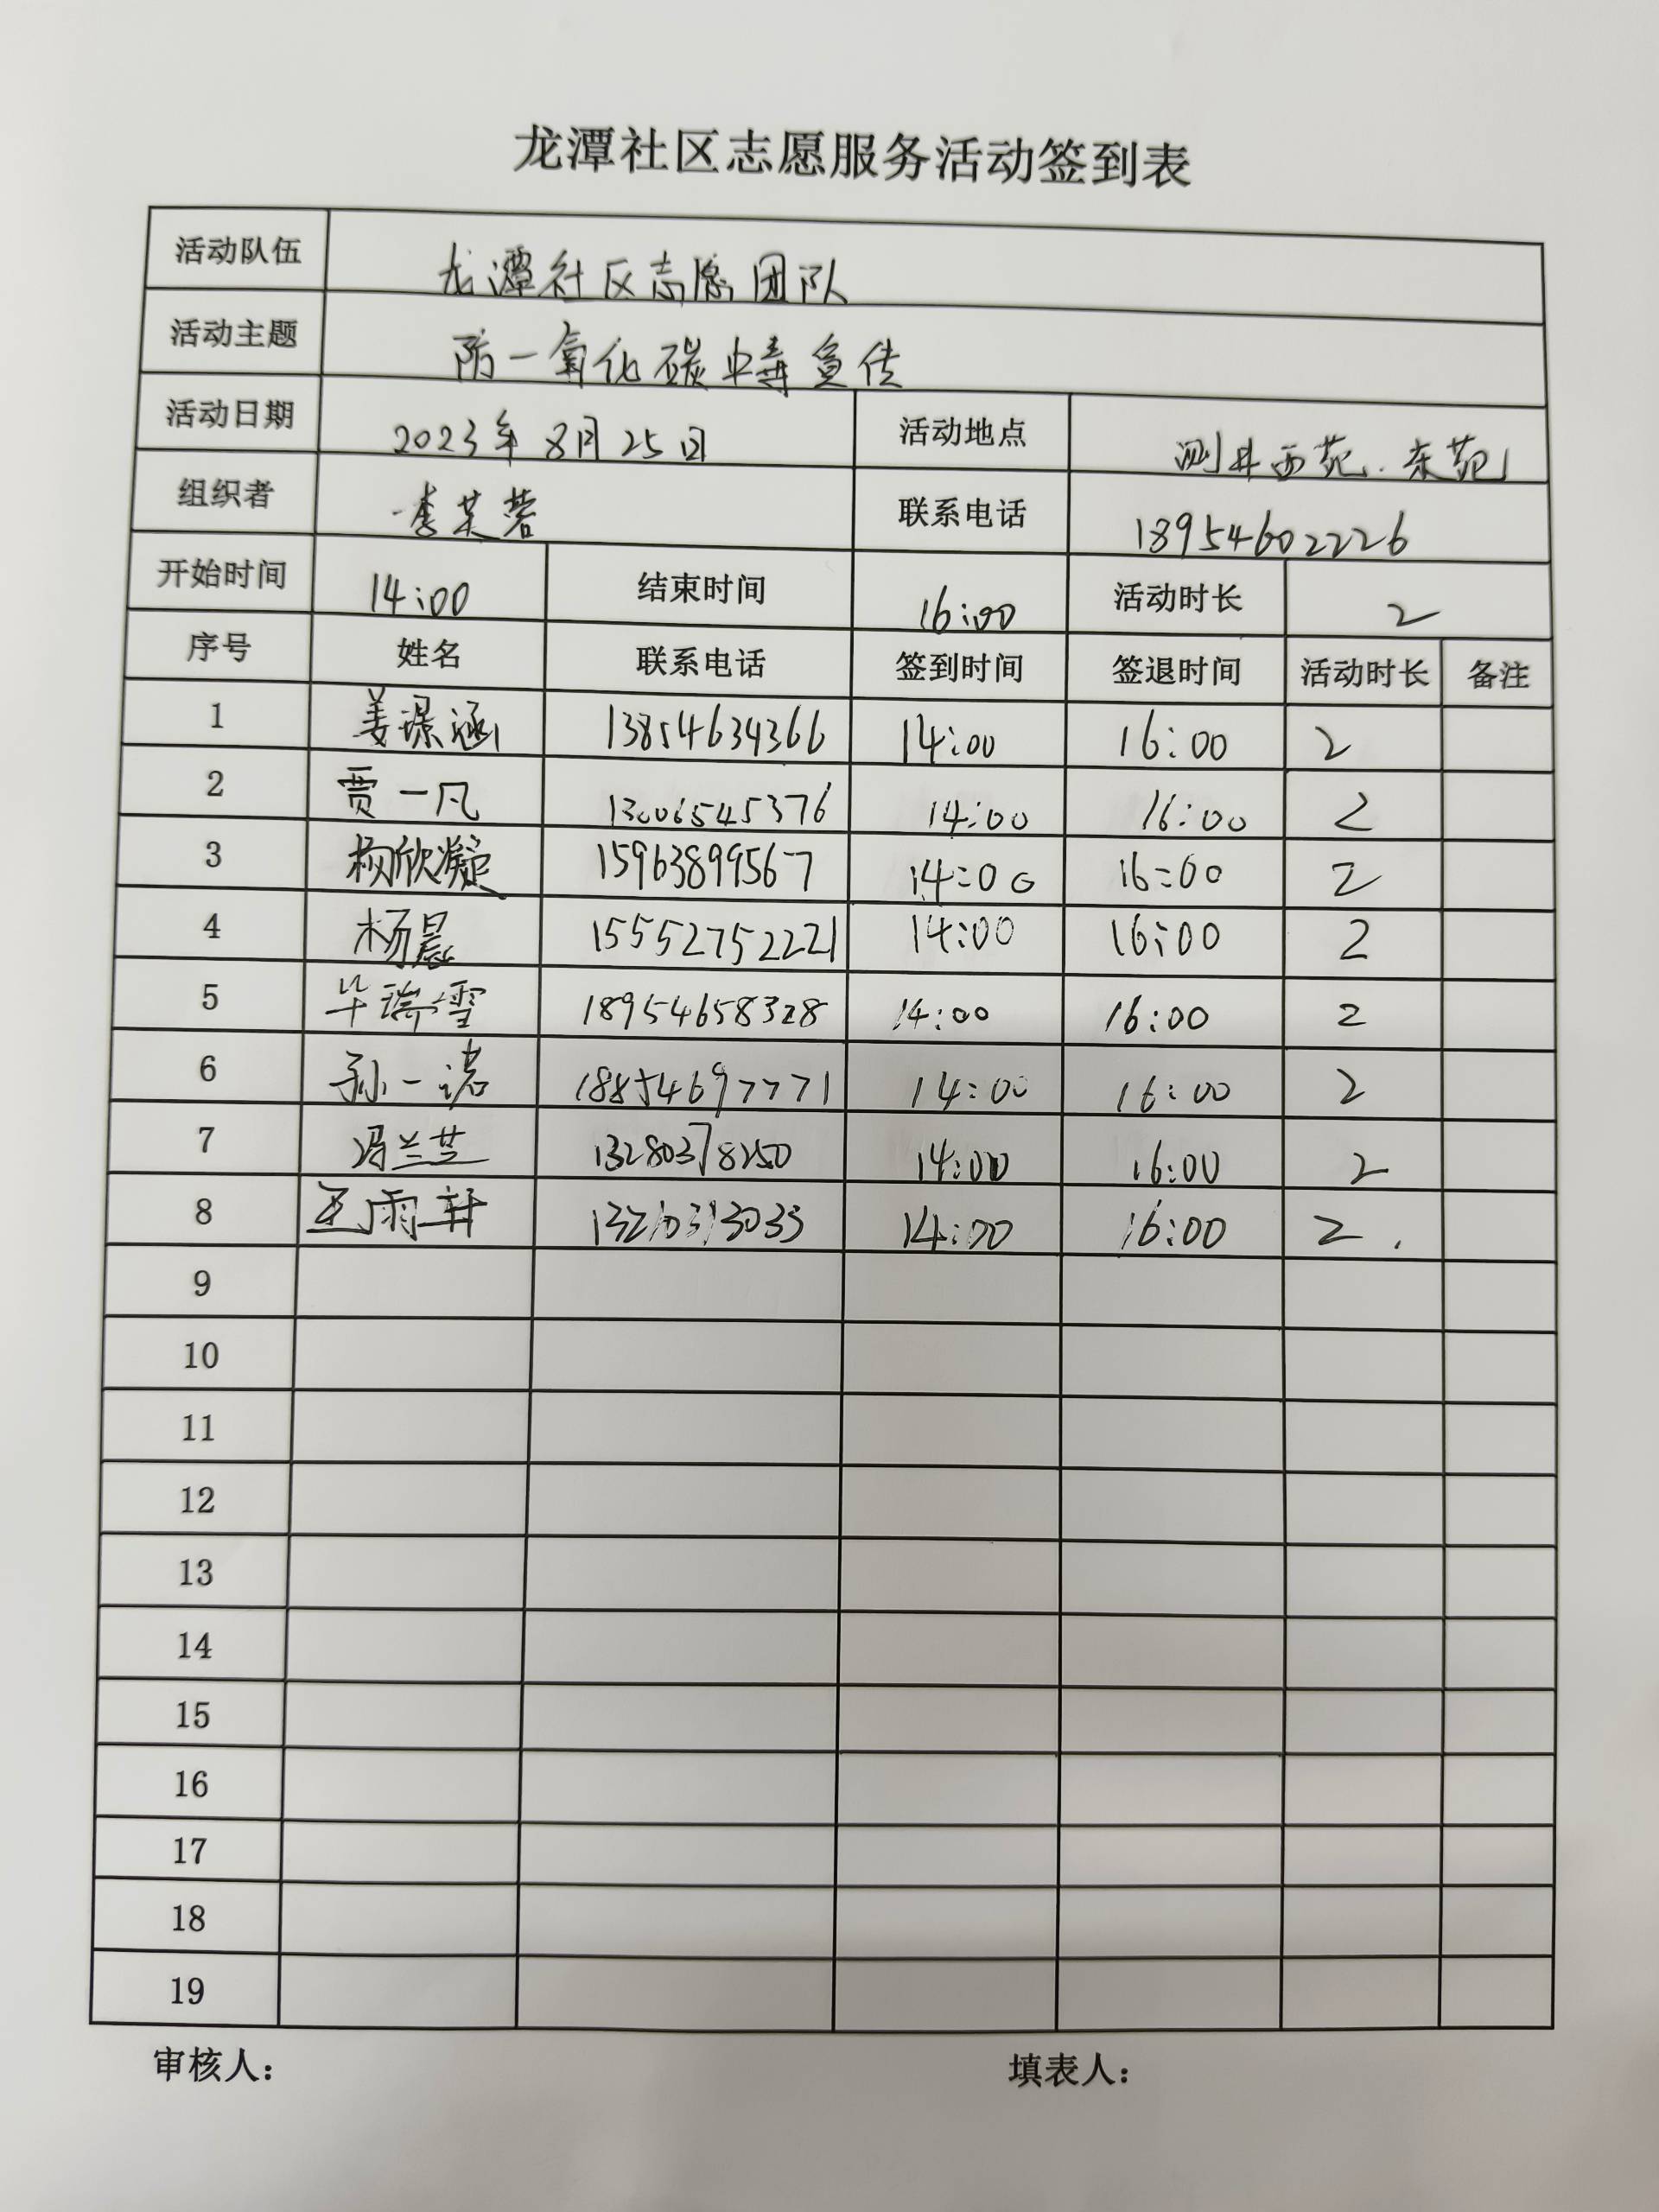 龙潭社区志愿服务活动签到表
活动队伍 龙潭社区志愿团队
活动主题 防一氧化碳中毒宣传
活动日期 2023年8月25日 活动地点 测井西苑、东苑
组织者 李芙蓉 联系电话 18954602226
开始时间 14:00 结束时间 16:00 活动时长 2
序号 姓名 联系电话 签到时间 签退时间 活动时长 备注
1 姜璟涵 13854634366 14:00 16:00 2
2 贾一凡 13006545376 14:00 16:00 2
3 杨欣凝 15963899567 14:00 16:00 2
4 杨晨 15552752221 14:00 16:00 2
5 毕瑞雪 18954658328 14:00 16:00 2
6 孙一诺 18854697771 14:00 16:00 2
7 冯兰芝 13280378250 14:00 16:00 2
8 王雨轩 14:00 16:00 2
9
10
11
12
13
14
15
16
17
18
19
审核人: 填表人: